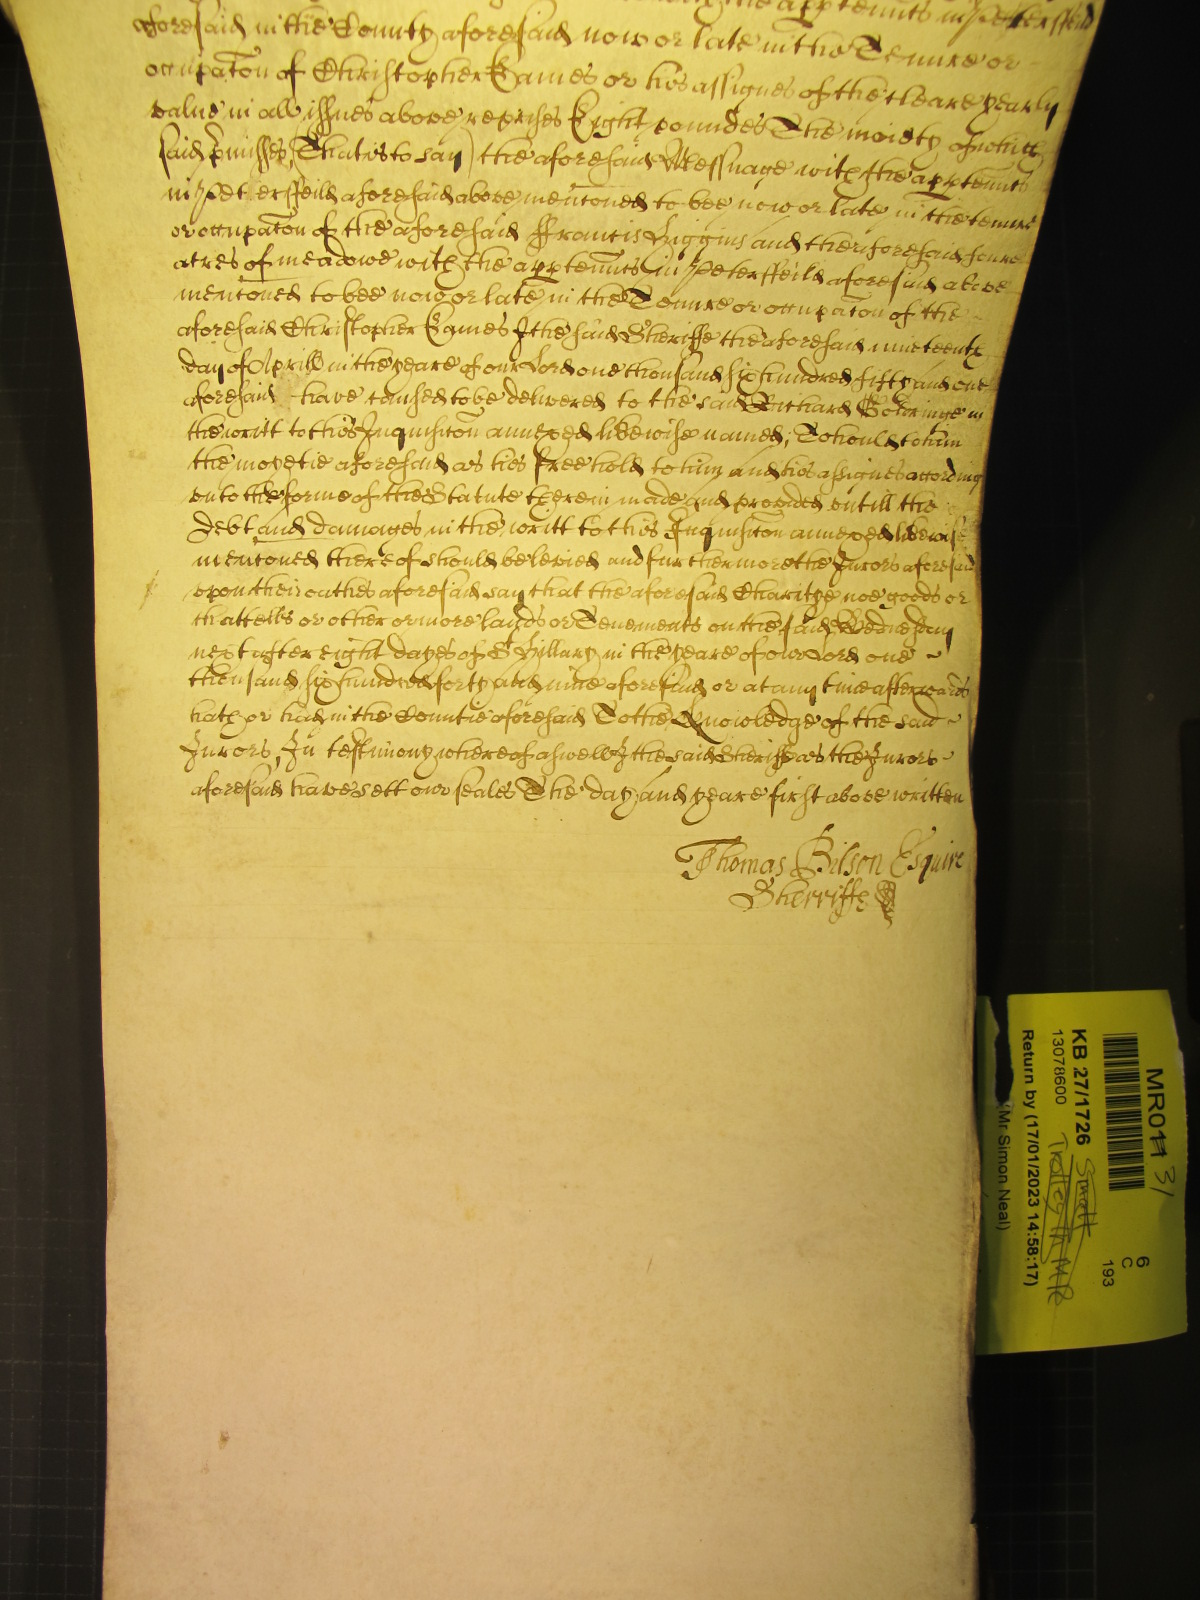 the apptennts in Petersfeild
aforesaid in the County aforesaid now or late in the Tenure or
occupacon of Christopher Eames or his assignes of the cleare yearly
value in all issues above reprises Eight poundes The moiety of which
said pmisses, (That is to say) the aforesaid Messuage with the apptennts
in Petersfeild aforesaid above mentoned to bee now or late in the tenure
or occupacon of the aforesaid ffrancis Higgins and the aforesaid foure
acres of meadowe with the apptennts in Petersffeild aforesaid above
mentoned to bee now or late in the Tenure or occupacon of the
aforesaid Christopher Eames I the said Sheriffe the aforesaid nineteenth
day of Aprill in the yeare of our Lord one thousand six hundred fifty and one
aforesaid have caused to be delivered to the said Richard in
the writt to this Inquisicon annexed likewise named, To hould to him
the moyetie aforesaid as his free hold to him and his assignes according
unto the forme of the Statute therein made and provided untill the
Debt and damages in the writt to this Inquisicon annexed likewise
mentoned thereof should be levied and furthermore the Jurors aforesaid
upon their oathes aforesaid say that the aforesaid Charitye noe goods or
chattells or other or more lands or Tenements on the said Wednesday
next after eight dayes of St Hillary in the yeare of our Lord one
thousand six hundred forty and nine aforesaid or at any time afterwards
hath or had in the Countie aforesaid To the Knowledge of the said
Jurors, In testimony whereof aswell I the said Sheriffe as the Jurors
aforesaid have sett our seales The day and yeare first above written
Thomas Bilson Esquire
Sherriffe
MR011 3/
6
C
193
KB 27/1726
13078600
Return by (17/01/2023 14:58:17)
(Mr Simon Neal)